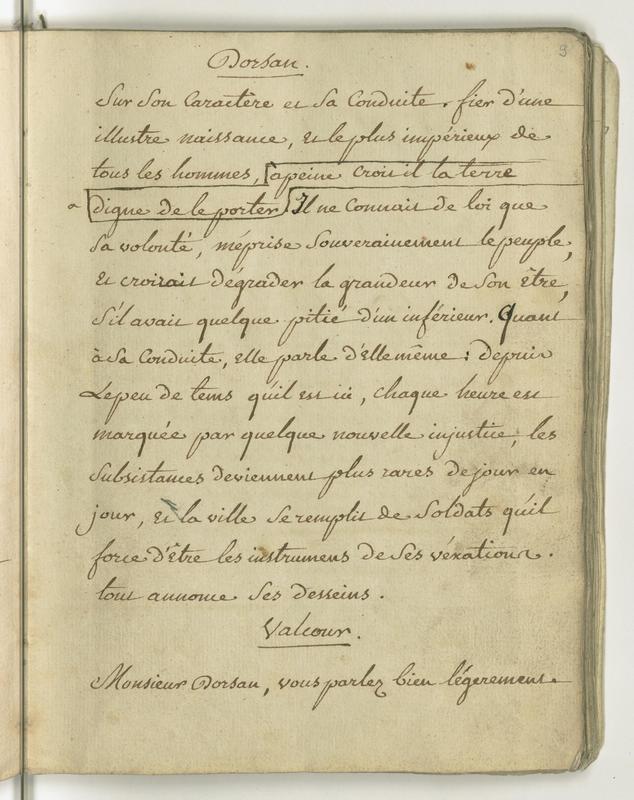 9
Dorsan.
Sur Son Caractère et Sa Conduite. fier d'une
illustre naissance, et le plus impérieux de
tous les hommes, apeine croit il la terre
digne de le porter. Il ne Connait de loi que
Sa volonté, méprise Souverainement le peuple,
et croirait dégrader la grandeur de Son Être,
S'il avait quelque pitié d'un inférieur. Quant
à Sa Conduite, elle parle d'Elle même : depuis
Le peu de tems qu'il est ici, chaque heure est
marquée par quelque nouvelle injustice, les
Subsistances deviennent plus rares de jour en
jour, et la ville Se remplit de Soldats qu'il
force d'être les instrumens de Ses véxations.
tout annonce Ses desseins.
Valcour.
Monsieur Dorsan, vous parlez bien légerement.